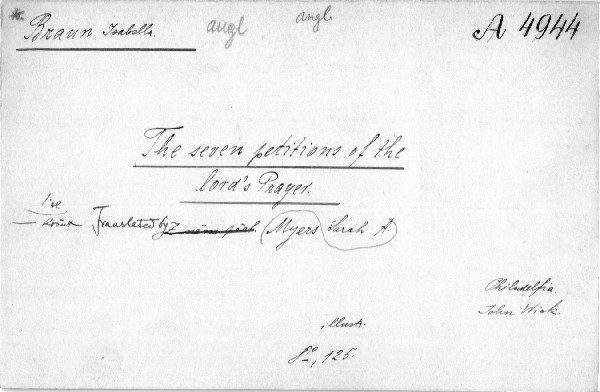 * Braun Isabella. angl angl. A 4944
The seven petitions of the
lord's Prayer.
Translated by (Myers Sarah A.)
Philadelfia.
John Wick.
illustr.
8°, 125.